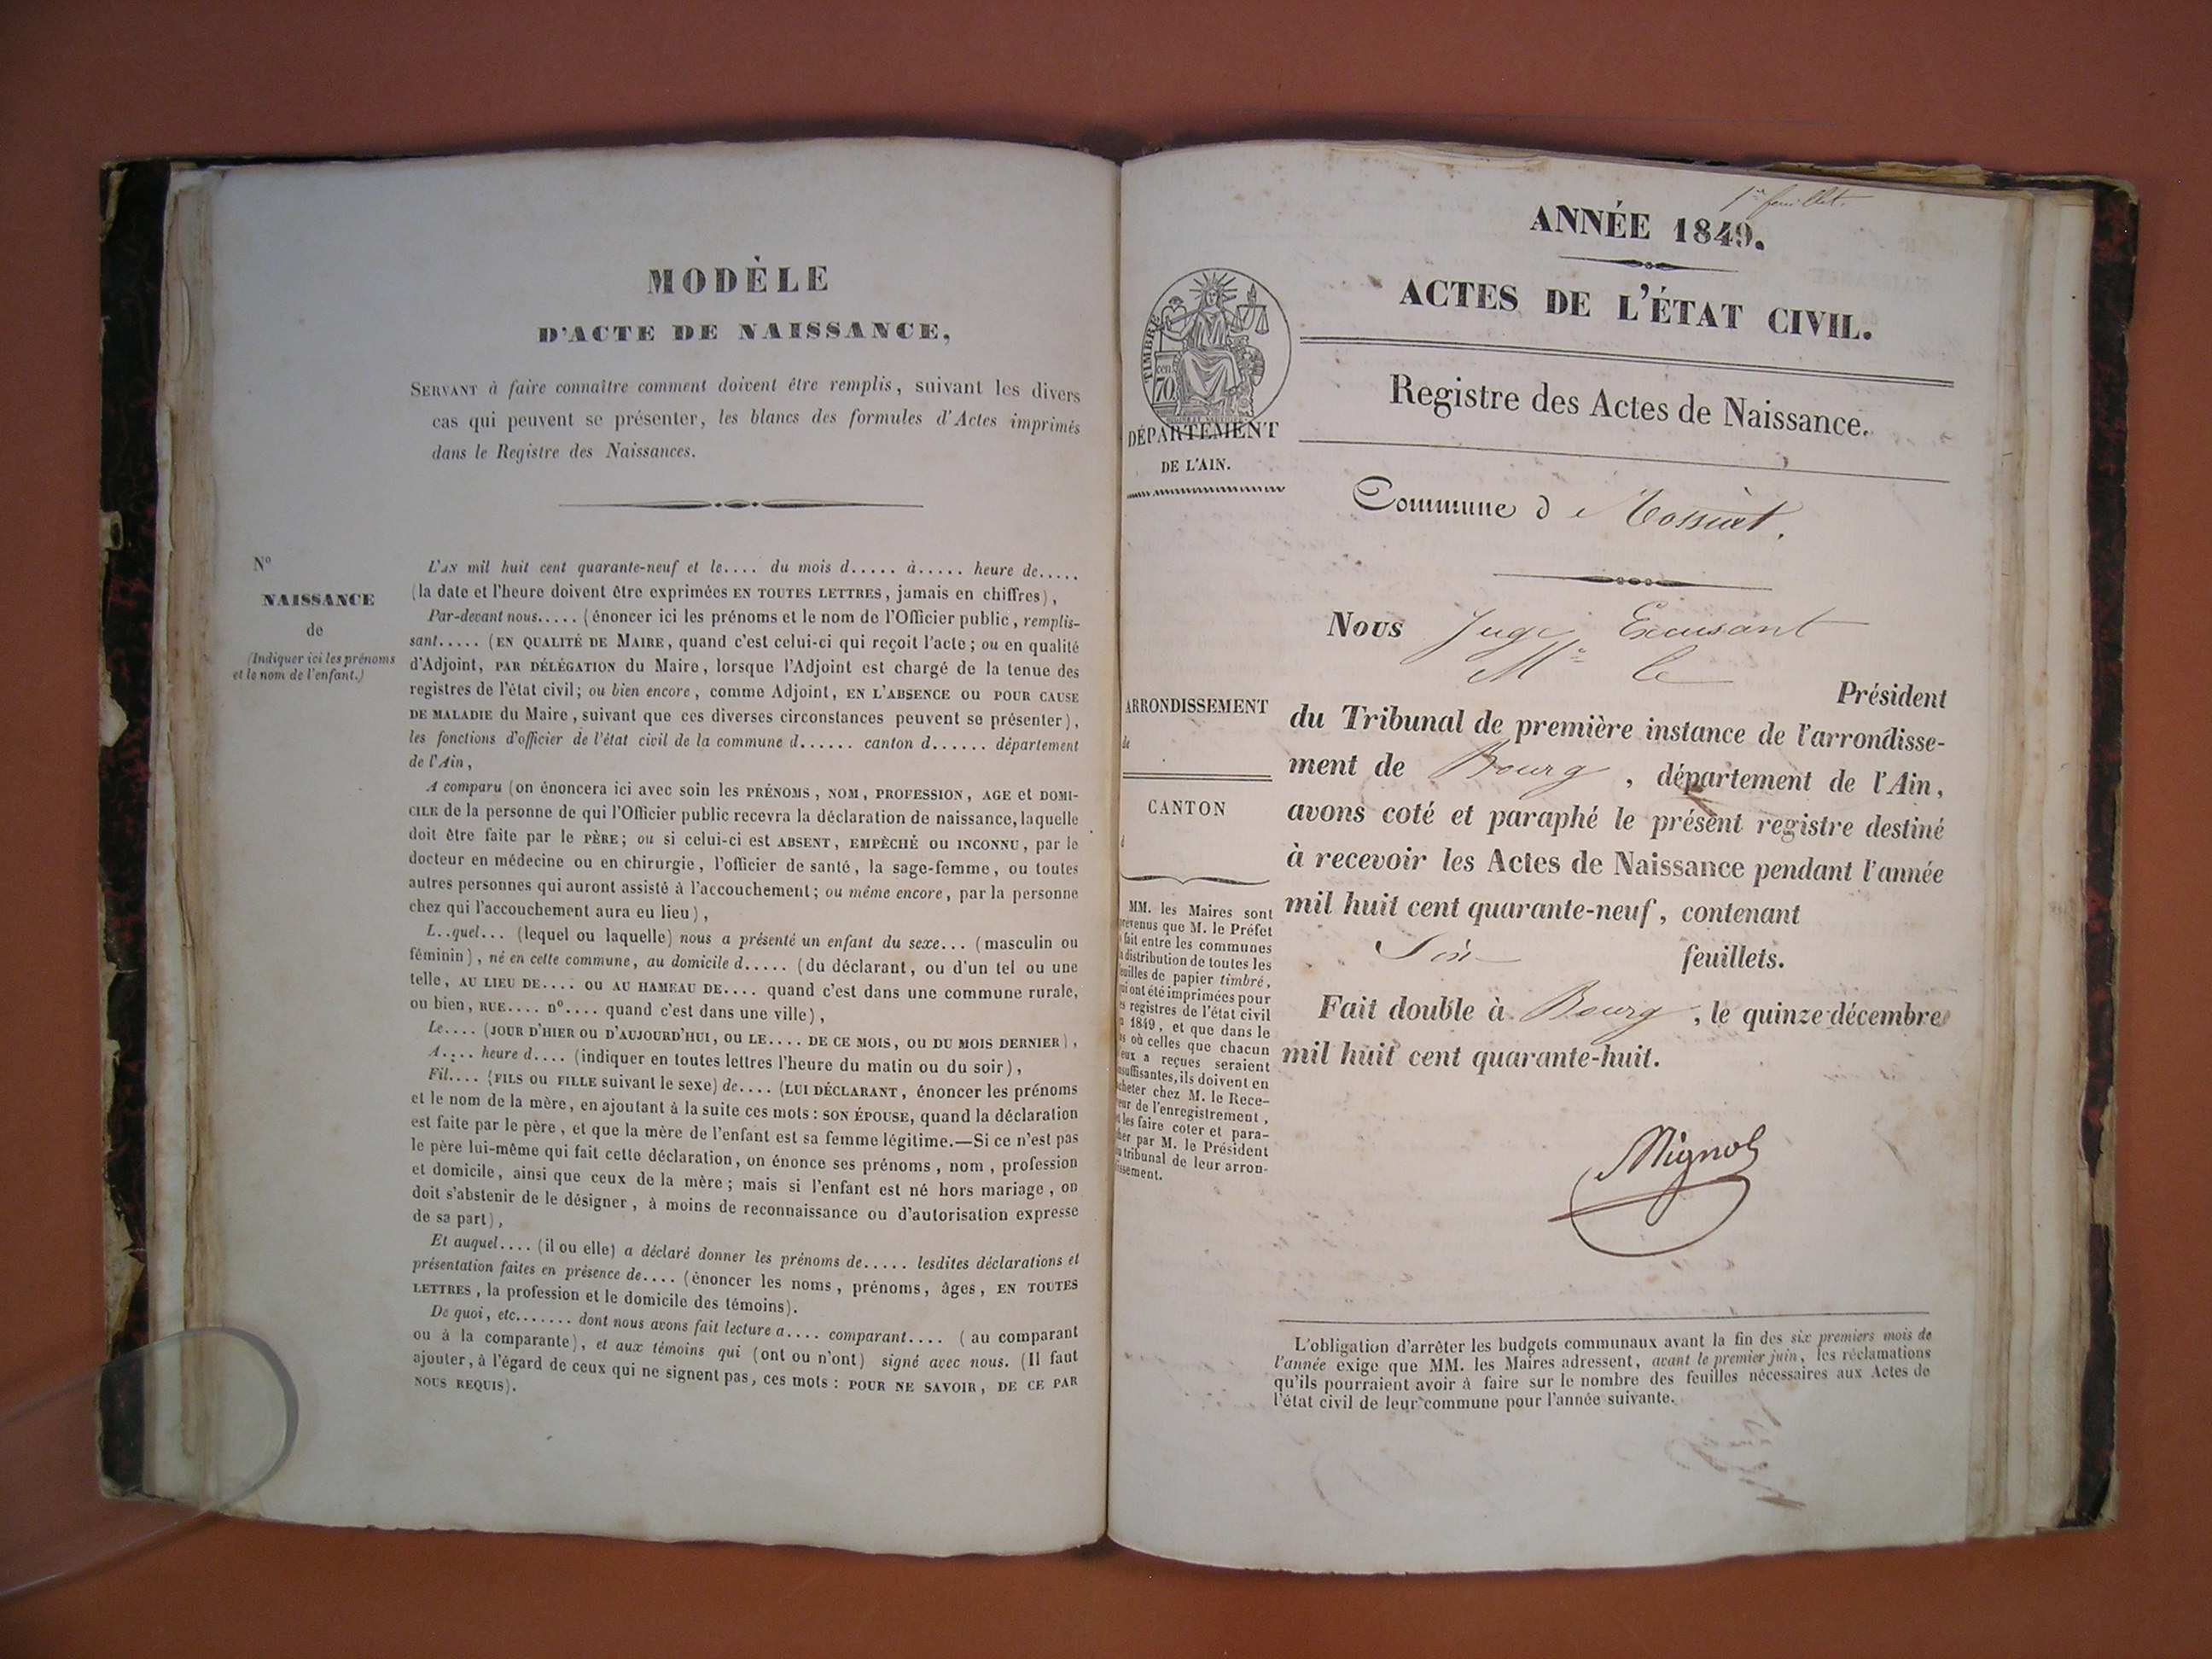 MODÈLE
D'ACTE DE NAISSANCE,
SERVANT à faire connaître comment doivent être remplis, suivant les divers
cas qui peuvent se présenter, les blancs des formules d'Actes imprimés
dans le Registre des Naissances.
N°
NAISSANCE
de
(Indiquer ici les prénoms
et le nom de l'enfant.)
L'AN mil huit cent quarante-neuf et le.... du mois d..... à..... heure de.....
(la date et l'heure doivent être exprimées EN TOUTES LETTRES, jamais en chiffres),
Par-devant nous..... (énoncer ici les prénoms et le nom de l'Officier public, remplis-
sant..... (EN QUALITÉ DE MAIRE, quand c'est celui-ci qui reçoit l'acte; ou en qualité
d'Adjoint, PAR DÉLÉGATION du Maire, lorsque l'Adjoint est chargé de la tenue des
registres de l'état civil; ou bien encore, comme Adjoint, EN L'ABSENCE OU POUR CAUSE
DE MALADIE du Maire, suivant que ces diverses circonstances peuvent se présenter),
les fonctions d'officier de l'état civil de la commune d...... canton d...... département
de l'Ain,
A comparu (on énoncera ici avec soin les PRÉNOMS, NOM, PROFESSION, AGE et DOMI-
CILE de la personne de qui l'Officier public recevra la déclaration de naissance, laquelle
doit être faite par le PÈRE; ou si celui-ci est ABSENT, EMPÊCHÉ OU INCONNU, par le
docteur en médecine ou en chirurgie, l'officier de santé, la sage-femme, ou toutes
autres personnes qui auront assisté à l'accouchement; ou même encore, par la personne
chez qui l'accouchement aura eu lieu),
L..quel... (lequel ou laquelle) nous a présenté un enfant du sexe... (masculin ou
féminin), né en cette commune, au domicile d..... (du déclarant, ou d'un tel ou une
telle, AU LIEU DE.... OU AU HAMEAU DE.... quand c'est dans une commune rurale,
ou bien, RUE.... n°.... quand c'est dans une ville),
Le.... (JOUR D'HIER OU D'AUJOURD'HUI, OU LE.... DE CE MOIS, OU DU MOIS DERNIER),
A.... heure d.... (indiquer en toutes lettres l'heure du matin ou du soir),
Fil.... (FILS OU FILLE suivant le sexe) de.... (LUI DÉCLARANT, énoncer les prénoms
et le nom de la mère, en ajoutant à la suite ces mots: SON ÉPOUSE, quand la déclaration
est faite par le père, et que la mère de l'enfant est sa femme légitime.—Si ce n'est pas
le père lui-même qui fait cette déclaration, on énonce ses prénoms, nom, profession
et domicile, ainsi que ceux de la mère; mais si l'enfant est né hors mariage, on
doit s'abstenir de le désigner, à moins de reconnaissance ou d'autorisation expresse
de sa part),
Et auquel.... (il ou elle) a déclaré donner les prénoms de..... lesdites déclarations et
présentation faites en présence de.... (énoncer les noms, prénoms, âges, EN TOUTES
LETTRES, la profession et le domicile des témoins).
De quoi, etc....... dont nous avons fait lecture a.... comparant.... (au comparant
ou à la comparante), et aux témoins qui (ont ou n'ont) signé avec nous. (Il faut
ajouter, à l'égard de ceux qui ne signent pas, ces mots: POUR NE SAVOIR, DE CE PAR
NOUS REQUIS).
1er feuillet.
ANNÉE 1849.
ACTES DE L'ÉTAT CIVIL.
TIMBRE
70
DÉPARTEMENT
DE L'AIN.
Registre des Actes de Naissance.
Commune d
Nous Juge
Mr le
Président
du Tribunal de première instance de l'arrondisse-
ment de Bourg, département de l'Ain,
avons coté et paraphé le présent registre destiné
à recevoir les Actes de Naissance pendant l'année
mil huit cent quarante-neuf, contenant
feuillets.
Fait double à Bourg, le quinze décembre
mil huit cent quarante-huit.
Mignot
ARRONDISSEMENT
de
CANTON
d
MM. les Maires sont
prévenus que M. le Préfet
a fait entre les communes
la distribution de toutes les
feuilles de papier timbré,
qui ont été imprimées pour
les registres de l'état civil
1849, et que dans le
cas où celles que chacun
d'eux a reçues seraient
insuffisantes, ils doivent en
acheter chez M. le Rece-
veur de l'enregistrement,
et les faire coter et para-
pher par M. le Président
du tribunal de leur arron-
dissement.
L'obligation d'arrêter les budgets communaux avant la fin des six premiers mois de
l'année exige que MM. les Maires adressent, avant le premier juin, les réclamations
qu'ils pourraient avoir à faire sur le nombre des feuilles nécessaires aux Actes de
l'état civil de leur commune pour l'année suivante.